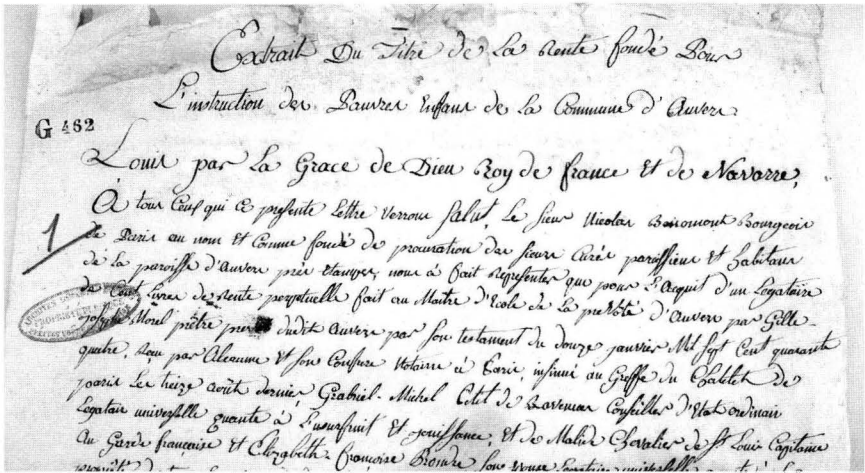 Extrait Du Titre de La Rente fondé Pour
L'instruction des Pauvres Enfans de la Commune d'Auvers
G 462
Louis par La Grace de Dieu Roy de france Et de Navarre,
A tous Ceux qui ce presente Lettre verrons Salut, Le Sieur Nicolas Bourgeois
1
de Paris au nom Et Comme fondé de procuration des sieurs Curés paroissiens Et habitans
de La paroisse d'Auvers près Etampes, nous à fait Representes que pour L'Acquit d'un Legataire
de Cent Livres de Rente perpetuelle fait au Maître d'Ecole de La prevôté d'Auvers par Gille-
joseph Morel prêtre dudit Auvers par son testament du douze janvier Mil Sept Cent quarante
PROPRIETE
quatre, reçu par Aleaume Et son Confrere Notaire à Paris, insinué au Greffe du Chatelet de
paris Le treize août dernier Grabriel-Michel de Conseiller d'Etat ordinair
Legatair universelle quante à L'usurfruit Et jouissance, Et de Chevalier de St Louis Capitaine
Au Garde francaise Et Elizabeth-francoise son